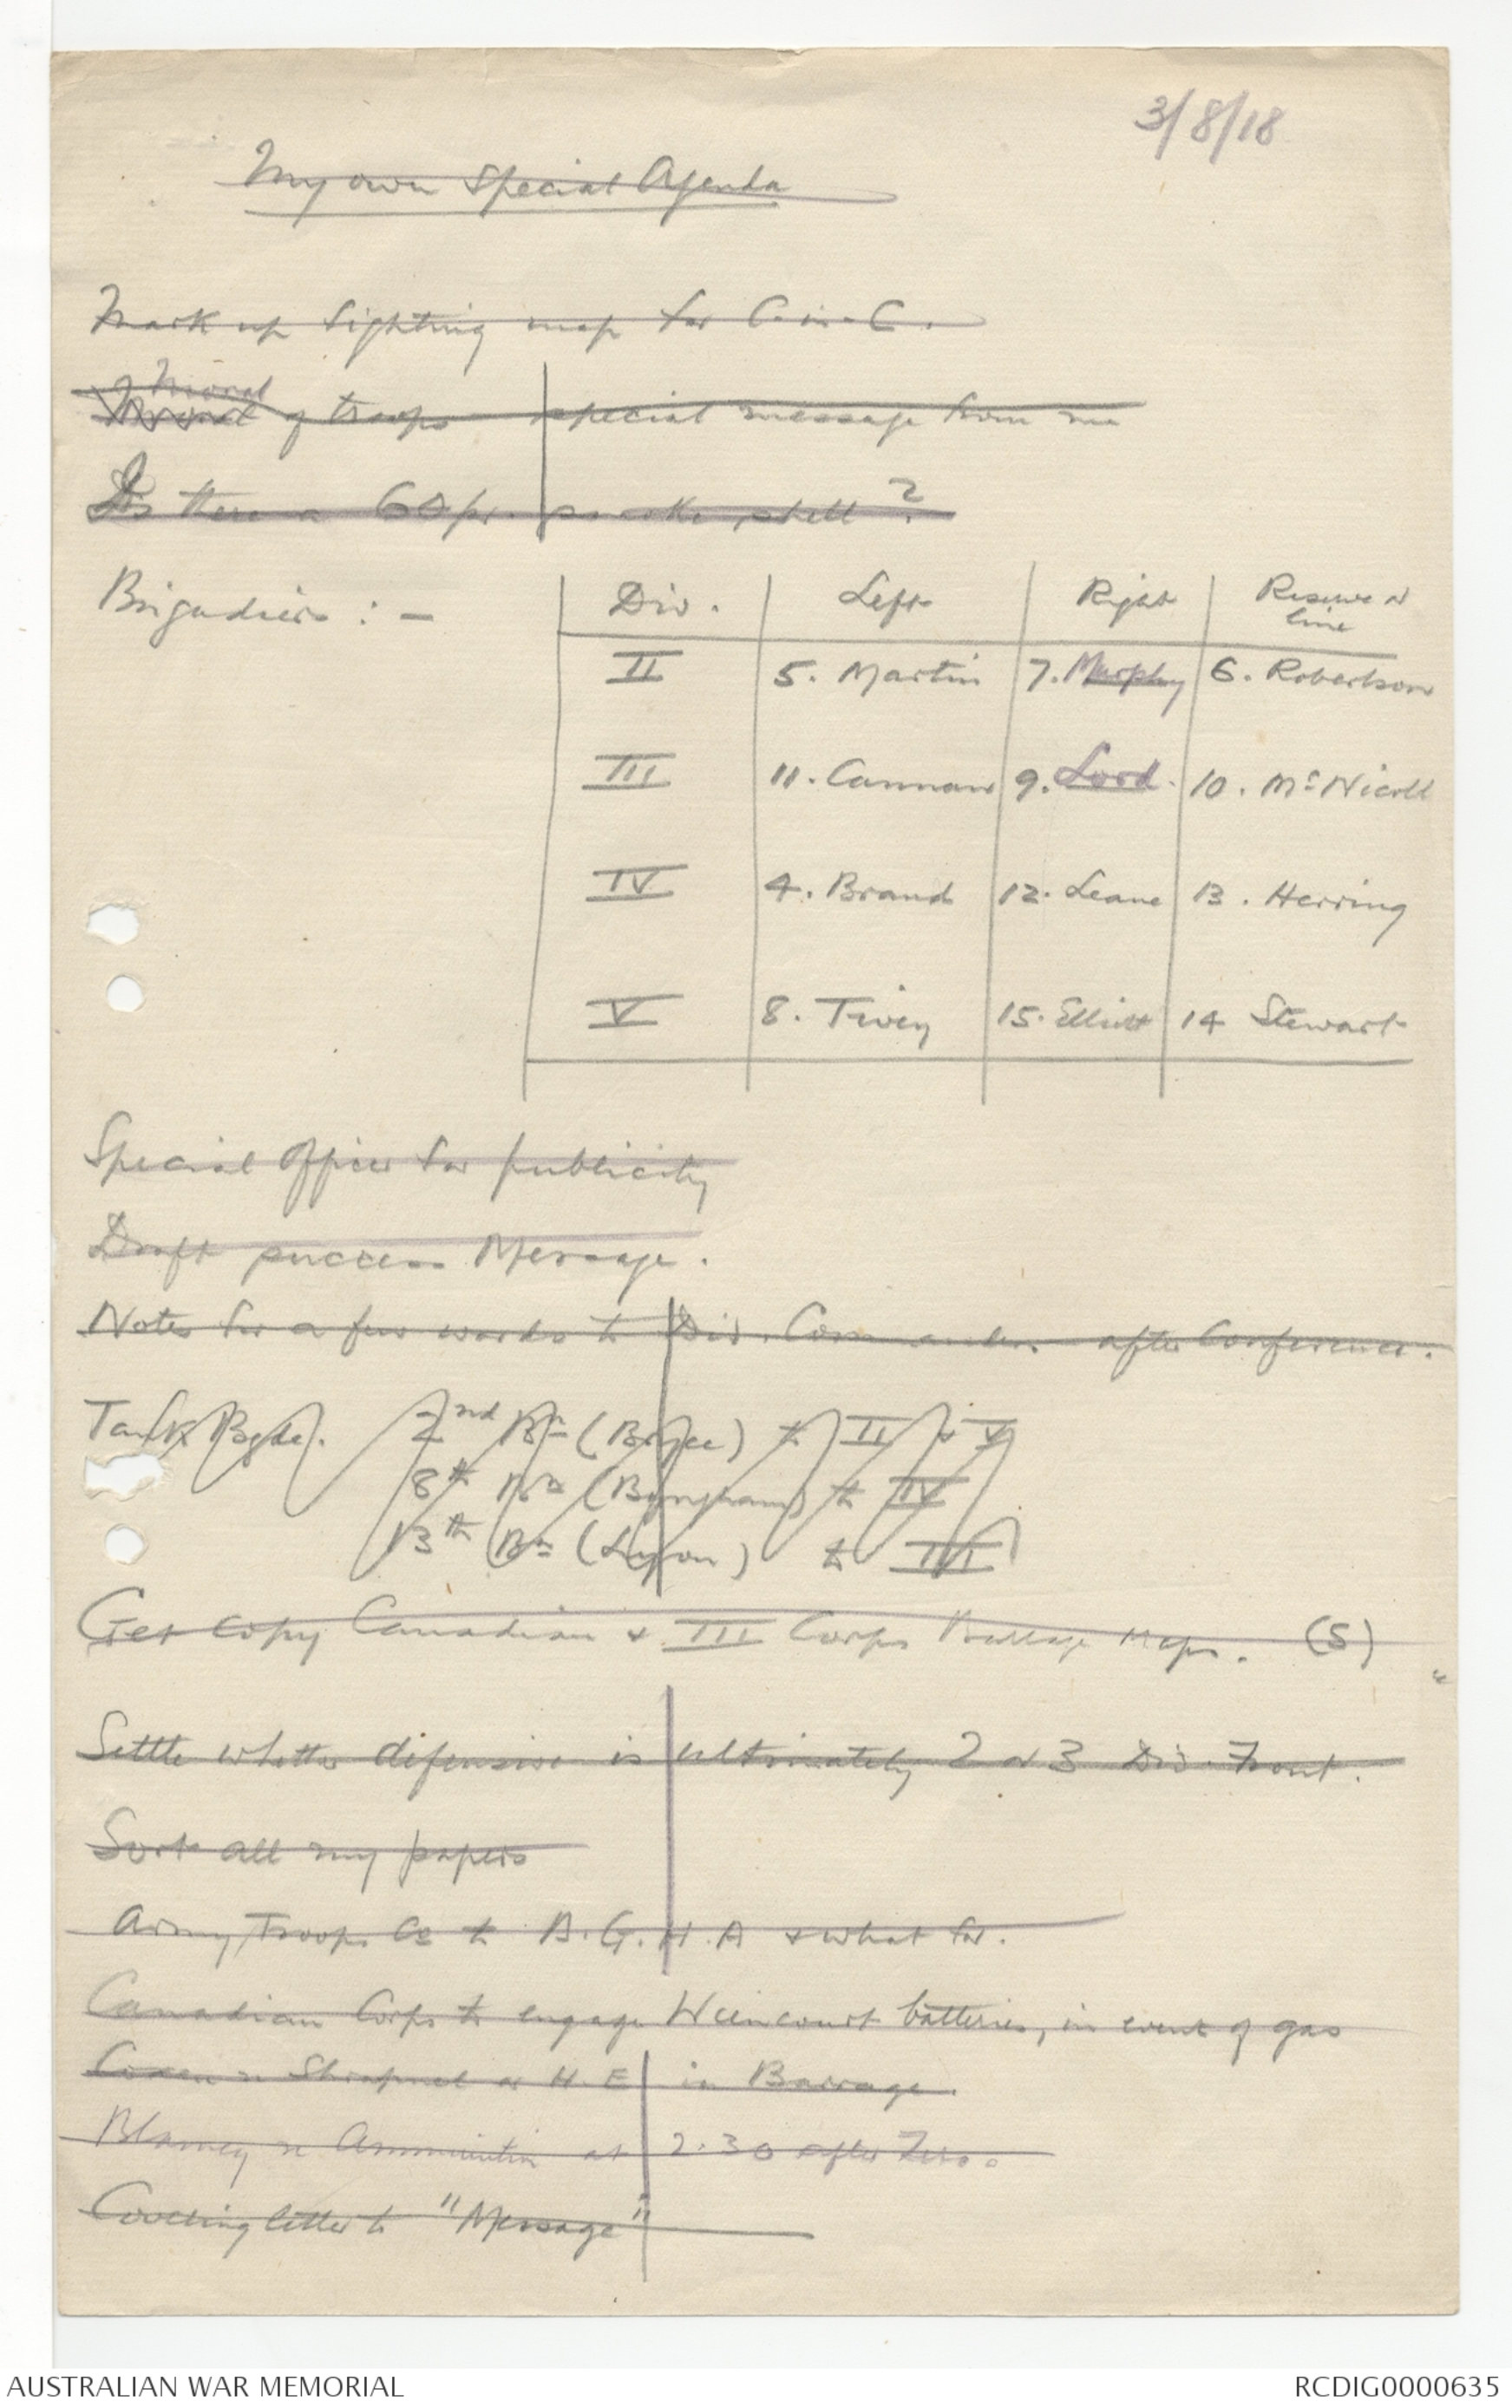 3/8/18
My own Special Agenda
Mark up fighting map for C-in-C.
Moral
of troops special message from me
Is there a 60 pr. smoke shell?
Brigadiers : - Div. Left Right Reserve or line
II 5. Martin 7. Murphy 6. Robertson
III 11. Cannan 9. Lord. 10. McNicoll
IV 4. Brand 12. Leane 13. Herring
V 8. Tivey 15. Elliott 14 Stewart
Special Officer for publicity
Draft success Message.
Notes for a few words to Div. Commanders after Conference.
Tank Bgde. 2nd Bn (Bryce) to II & V
8th Bn (Bingham) to IV
13th Bn (Lyon) to III
Get copy Canadian & III Corps Barrage Maps. (S)
Settle whether defensive is ultimately 2 or 3 Div. Front.
Sort all my papers
Army Troops Co to B.G.H.A & what for.
Canadian Corps to engage Wiencourt batteries, in event of gas
Coxen re Shrapnel or H.E in Barrage.
Blamey re Ammunition at 2.30 after Zero.
Covering letter to "Message"
AUSTRALIAN WAR MEMORIAL
RCDIG0000635